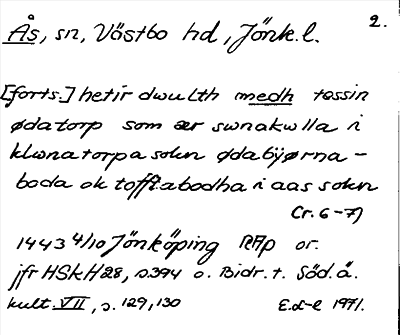 2.
Ås, sn, Västbo hd, Jönk.l.
[forts.] hetir dwulth medh tessin
ødatorp som ær swnakwlla i
klwnatorpa sokn ødabÿørna-
boda ok tofftabodha i aas sokn
(r. 6-7)
1443 4/10 Jönköping RAp or.
jfr HSkH 28, s.394 o. Bidr. t. Söd. ä.
kult. VII, s. 129, 130